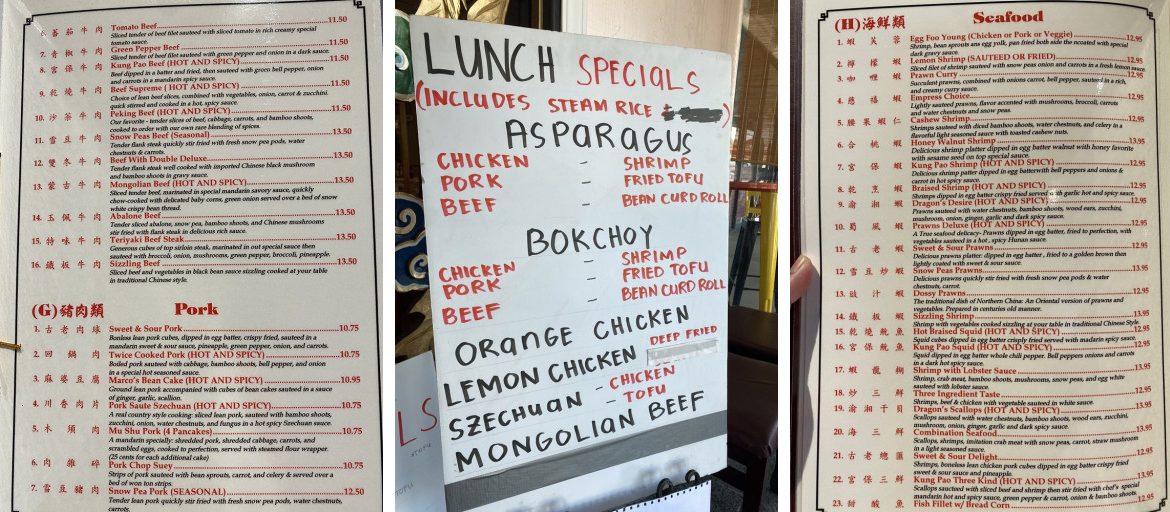 6. 蕃茄牛肉 Tomato Beef 11.50
Sliced tender of beef filet sauteed with sliced tomato in rich creamy special
tomato sauce.
7. 青椒牛肉 Green Pepper Beef 11.50
Sliced tender of beef filet sauteed with green pepper and onion in a dark sauce.
8. 宮保牛肉 Kung Pao Beef (HOT AND SPICY) 11.50
Beef dipped in a batter and fried, then sauteed with green bell pepper, onion
and carrots in a mandarin spicy sauce.
9. 乾燒牛肉 Beef Supreme ( HOT AND SPICY) 11.50
Choice of lean beef slices, combined with vegetables, onion, carrot & zucchini
quick stirred and cooked in a hot, spicy sauce.
10. 沙茶牛肉 Peking Beef (HOT AND SPICY) 11.50
Our favorite - tender slices of beef, cabbage, carrots, and bamboo shoots,
cooked to order with our own rare blending of spices.
11. 雪豆牛肉 Snow Peas Beef (Seasonal) 13.50
Tender flank steak quickly stir fried with fresh snow pea pods, water
chestnuts & carrots.
12. 雙冬牛肉 Beef With Double Deluxe 13.50
Tender flank steak well cooked with imported Chinese black mushroom
and bamboo shoots in gravy sauce.
13. 蒙古牛肉 Mongolian Beef (HOT AND SPICY) 13.50
Sliced tender beef, marinated in special mandarin savory sauce, quickly
chow-cooked with delicated baby corn, green onion served over a bed of snow
white crispy bean thread.
14. 玉佩牛肉 Abalone Beef 13.50
Tender sliced abalone, snow pea, bamboo shoots, and Chinese mushrooms
stir fried with flank steak in delicious rich sauce.
15. 特味牛肉 Teriyaki Beef Steak 13.50
Generous cubes of top sirloin steak, marinated in out special sauce then
sauteed with broccoli, onion, mushrooms, green pepper, broccoli, pineapple.
16. 鐵板牛肉 Sizzling Beef 13.50
Sliced beef and vegetables in black bean sauce sizzling cooked at your table
in traditional Chinese style.
(G)豬肉類 Pork
1. 古老肉 Sweet & Sour Pork 10.75
Boniless lean pork cubes, dipped in egg batter, crispy fried, sauteed in a
mandarin sweet & sour sauce, pineapple, green pepper, onion, and carrots.
2. 回鍋肉 Twice Cooked Pork (HOT AND SPICY) 10.75
Boiled pork sauteed with cabbage, bamboo shoots, bell pepper, and onion
in a special hot seasoned sauce.
3. 麻婆豆腐 Marco's Bean Cake (HOT AND SPICY) 10.95
Ground lean pork accompanied with cubes of bean cakes sauteed in a sauce
of ginger, garlic, scallion.
4. 川香肉片 Pork Saute Szechuan (HOT AND SPICY) 10.75
A real country style cooking: sliced lean pork, sauteed with bamboo shoots,
zucchini, onion, water chestnuts, and fungus in a hot spicy Szechuan sauce.
5. 木須肉 Mu Shu Pork (4 Pancakes) 10.75
A mandarin specialy: shredded pork, shredded cabbage, carrots, and
scrambled eggs, cooked to perfection, served with steamed flour wrapper.
(25 cents for each additional cake)
6. 肉雜碎 Pork Chop Suey 10.75
Strips of pork sauteed with bean sprouts, carrot, and celery & served over a
bed of won ton strips.
7. 雪豆豬肉 Snow Pea Pork (SEASONAL) 12.50
Tender lean pork quickly stir fried with fresh snow pea pods, water chestnuts,
carrots.
LUNCH SPECIALS
(INCLUDES STEAM RICE )
ASPARAGUS
CHICKEN - SHRIMP
PORK - FRIED TOFU
BEEF - BEAN CURD ROLL
BOKCHOY
CHICKEN - SHRIMP
PORK - FRIED TOFU
BEEF - BEAN CURD ROLL
ORANGE CHICKEN
LEMON CHICKEN DEEP FRIED
SZECHUAN - CHICKEN
- TOFU
MONGOLIAN BEEF
LS
(H)海鮮類 Seafood
1. 蝦芙蓉 Egg Foo Young (Chicken or Pork or Veggie) 12.95
Shrimp, bean sprouts ans egg yolk, pan fried both side the ncoated with special
dark gravy sauce.
2. 檸檬蝦 Lemon Shrimp (SAUTEED OR FRIED) 12.95
Sliced filet of shrimp sauteed with snow peas onion and carrots in a fresh lemon sauce.
3. 咖哩蝦 Prawn Curry 12.95
Succulent prawns, combined with onions carrot, bell pepper, sauteed in a rich,
and creamy curry sauce.
4. 慈禧蝦 Empress Choice 12.95
Lightly sauteed prawns, flavor accented with mushrooms, broccoli, carrots
and water chestnuts and snow peas.
5. 腰果蝦仁 Cashew Shrimp 12.95
Shrimps sauteed with diced bamboo shoots, water chestnuts, and celery in a
flavorful light seasoned sauce with toasted cashew nuts.
6. 合桃蝦 Honey Walnut Shrimp 12.95
Delicious shrimp platter dipped in egg batter walnut with honey favorite
with sesame seed on top special sauce.
7. 宮保蝦 Kung Pao Shrimp (HOT AND SPICY) 12.95
Delicious shrimp patter dipped in egg batterwith bell peppers and onions &
carrot in hot spicy sauce.
8. 乾烹蝦 Braised Shrimp (HOT AND SPICY) 12.95
Shrimps dipped in egg batter crispy fried served with garlic hot and spicy sauce.
9. 渝湘蝦 Dragon's Desire (HOT AND SPICY) 12.95
Prawns sauteed with water chestnuts, bamboo shoots, wood ears, zucchini,
mushroom, onion, ginger, garlic and dark spicy sauce.
10. 蜀風蝦 Prawns Deluxe (HOT AND SPICY) 12.95
A True seafood delicacy- Prawns dipped in egg batter, fried to perfection, with
vegetables sauteed in a hot , spicy Hunan sauce.
11. 古老蝦 Sweet & Sour Prawns 12.95
Delicious prawns platter: dipped in egg batter , fried to a golden brown then
lightly coated with sweet & sour sauce.
12. 雪豆炒蝦 Snow Peas Prawns 13.95
Delicious prawns quickly stir fried with fresh snow pea pods & water
chestnuts, carrot.
13. 豉汁蝦 Dossy Prawns 12.95
The traditional dish of Northern China: An Oriental version of prawns and
vegetables. Prepared in centuries old manner.
14. 鐵板蝦 Sizzling Shrimp 13.95
Shrimp with vegetables cooked sizzling at your table in traditional Chinese Style.
15. 乾燒魷魚 Hot Braised Squid (HOT AND SPICY) 12.95
Squid cubes dipped in egg batter crisply fried served with madarin spicy sauce.
16. 宮保魷魚 Kung Pao Squid (HOT AND SPICY) 12.95
Squid dipped in egg batter whole chili pepper. Bell peppers onions and carrots
in a dark hot spicy sauce.
17. 蝦龍糊 Shrimp with Lobster Sauce 13.95
Shrimp, crab meat, bamboo shoots, mushrooms, snow peas, and egg white
sauteed with lobster sauce.
18. 炒三鮮 Three Ingredient Taste 13.95
Shrimps, beef & chicken with vegetable sauteed in white sauce.
19. 渝湘干貝 Dragon's Scallops (HOT AND SPICY) 13.95
Scallops sauteed with water chestnuts, bamboo shoots, wood ears, zucchini,
mushroom, onion, ginger, garlic and dark spicy sauce.
20. 海三鮮 Combination Seafood 13.95
Scallops, shrimps, imitation crab meat with snow peas, carrot, straw mushroom
in a light seasoned sauce.
21. 古老總匯 Sweet & Sour Delight 12.95
Shrimps, boneless lean chicken pork cubes dipped in egg batter crispy fried
sweet & sour sauce and pineapple.
22. 宮保三鮮 Kung Pao Three Kind (HOT AND SPICY) 13.95
Scallops saucteed with sliced beef and shrimp then stir fried with chef's special
mandarin hot and spicy sauce, green pepper & carrot, onion & bamboo shoots.
23. 甜酸魚 Fish Fillet w/ Bread Corn 12.95